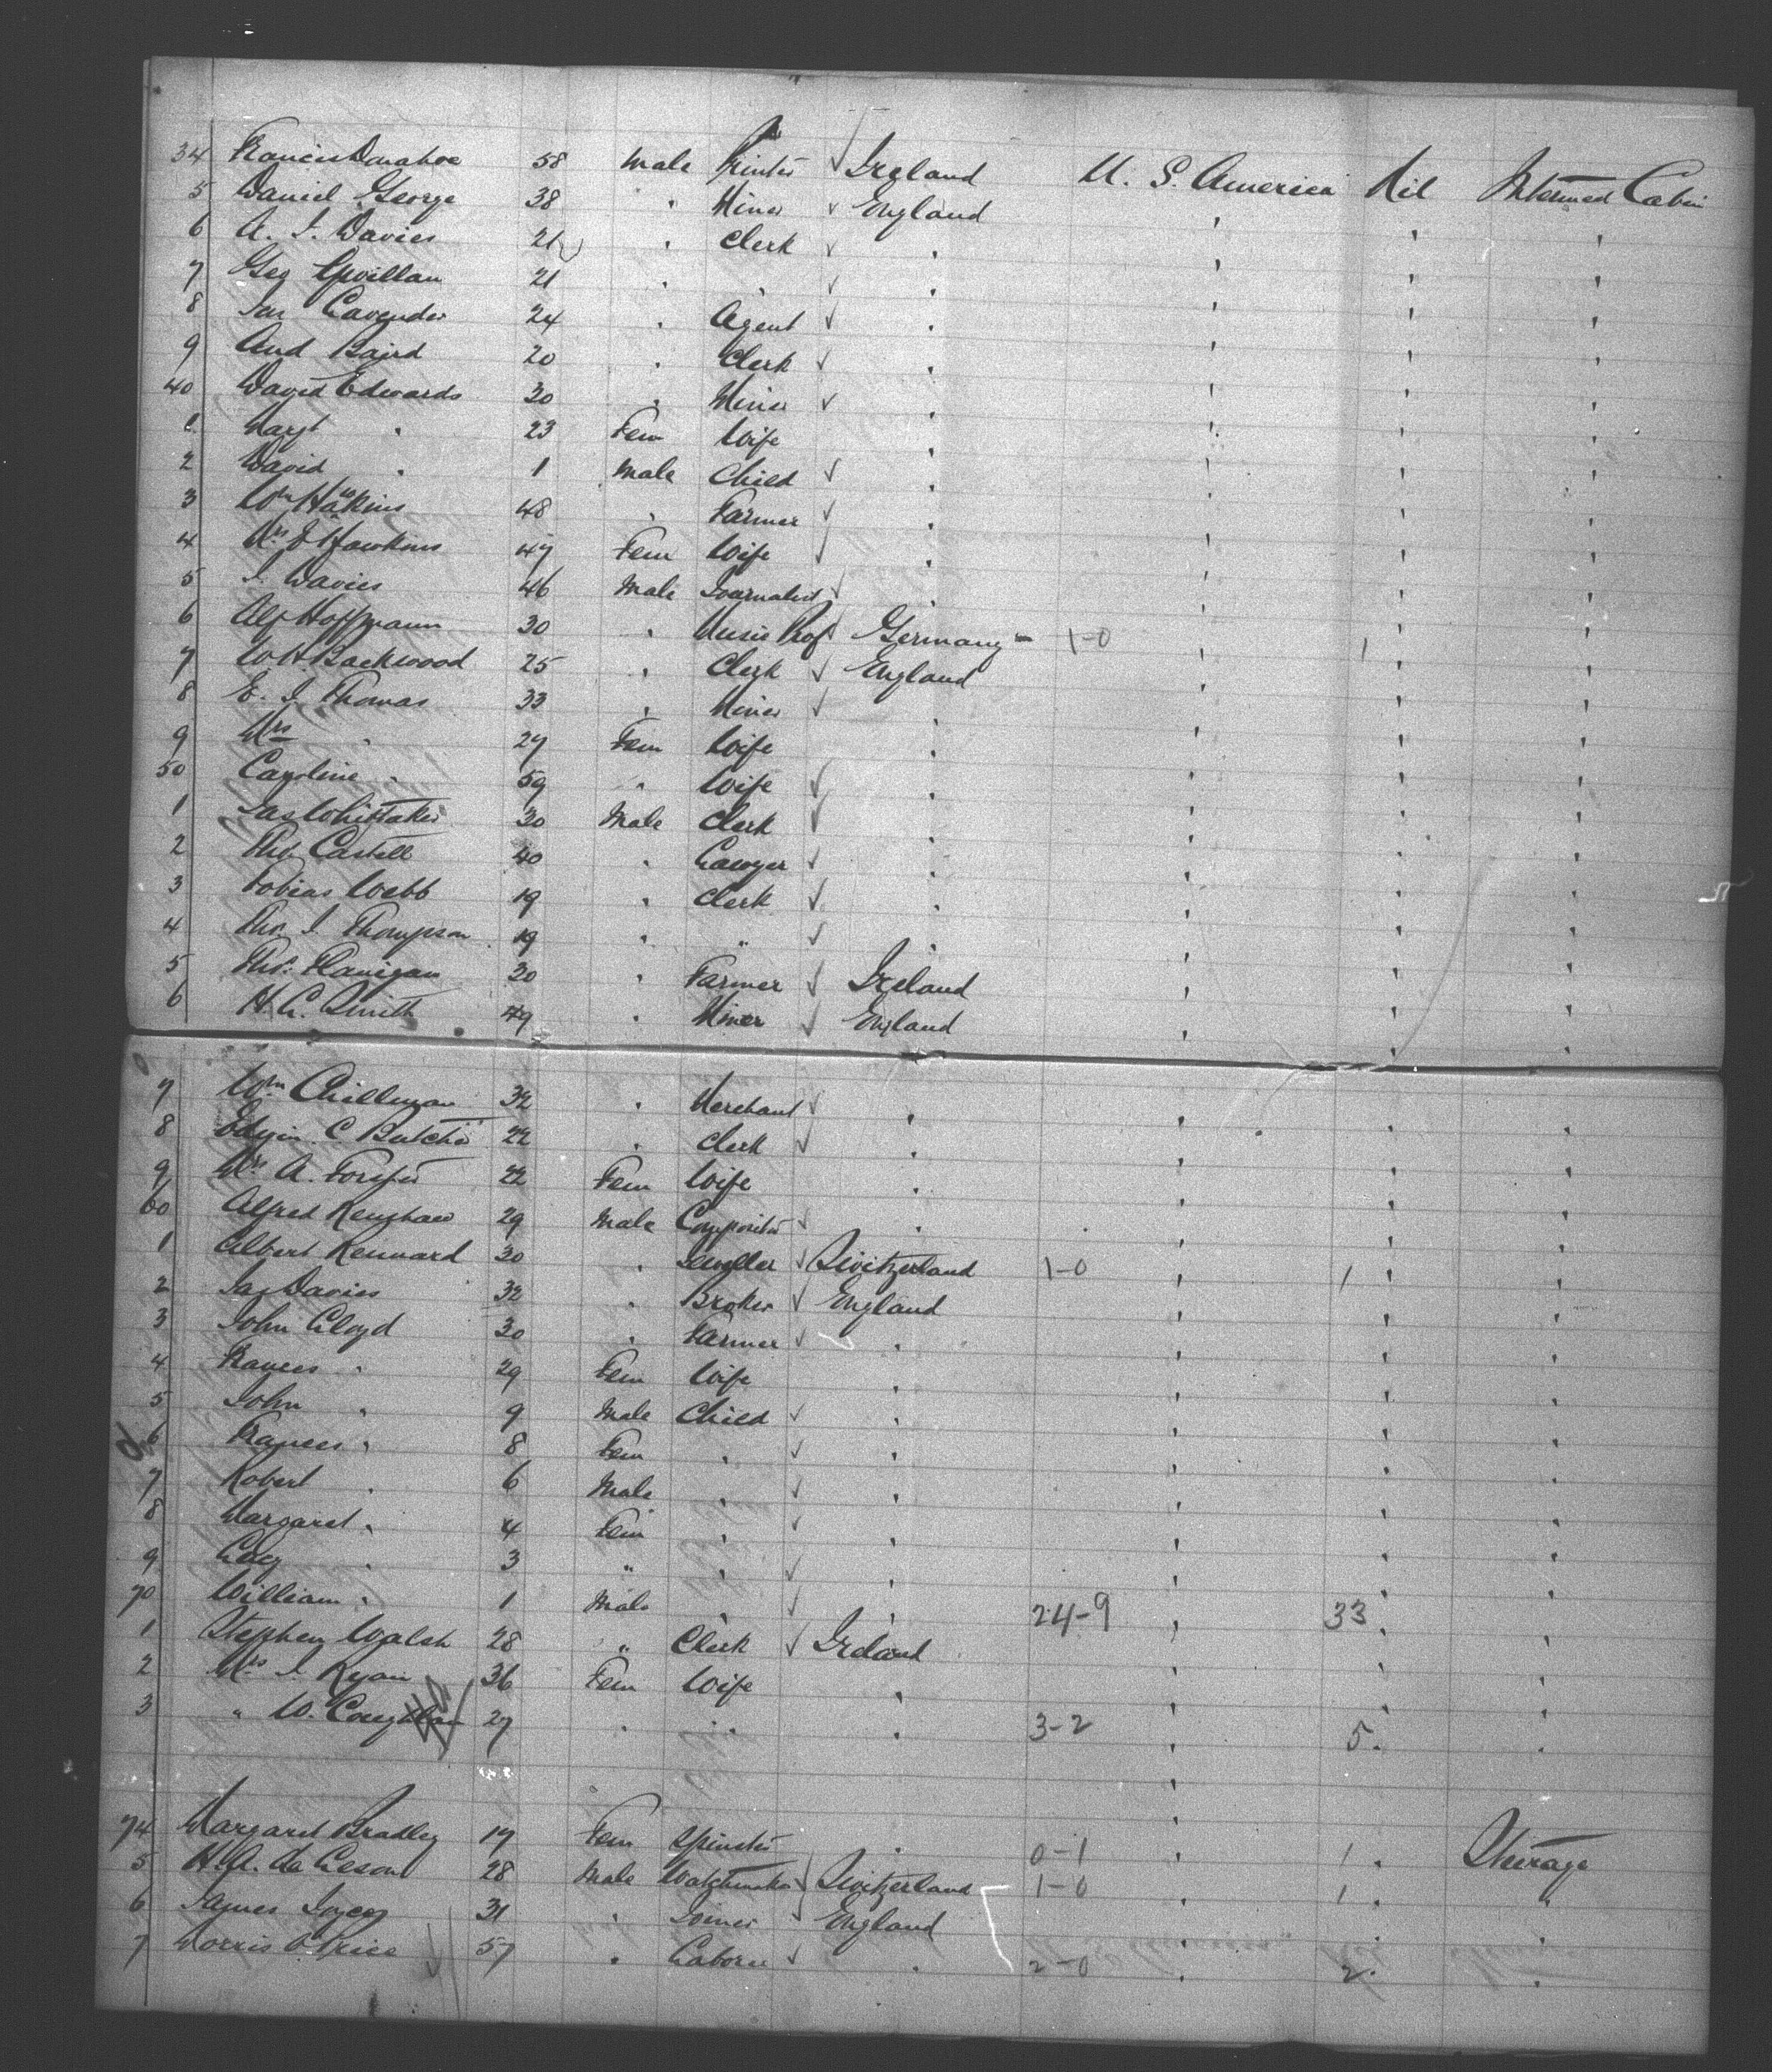 34 Francis Donahoe 58 Male Printer Ireland U. S. America Nil Intermed Cabin
5 Daniel George 38 " Miner England " " "
6 A. J. Davies 21 " Clerk " " " "
7 Geo Gwillam 21 " " " " " "
8 Jas Cavender 24 " Agent " " " "
9 And Baird 20 " Clerk " " " "
40 David Edwards 30 " Miner " " " "
1 Margt " 23 Fem Wife " " " "
2 David " 1 Male Child " " " "
3 Wm Hawkins 48 " Farmer " " " "
4 Mrs J Hawkins 47 Fem Wife " " " "
5 J. Davies 46 Male Journalist " " " "
6 Alf Hoffmann 30 " Music Prof Germany 1-0 " 1 " "
7 W H Backwood 25 " Clerk England " " "
8 E. J. Thomas 33 " Miner " " "
9 Mrs " 27 Fem Wife " " " "
50 Caroline " 59 " Wife " " " "
1 Jas Whittaker 30 Male Clerk " " " "
2 Thos Castell 40 " Lawyer " " " "
3 Tobias Webb 19 " Clerk " " " "
4 Thos J. Thompson 19 " " " " " "
5 Thos Flanigan 30 " Farmer Ireland " " "
6 H. C. Smith 49 " Miner England " " "
7 Wm Chillman 32 " Merchant " " " "
8 Edgin C Butcher 22 " Clerk " " " "
9 Mrs A. Forster 22 Fem Wife " " " "
60 Alfred Renshaw 29 Male Compositor " " " "
1 Albert Rennard 30 " Jeweller Switzerland 1-0 " 1 " "
2 Jas Davies 32 " Broker England " " "
3 John Lloyd 30 " Farmer " " " "
4 Frances " 29 Fem Wife " " " "
5 John " 9 Male Child " " " "
6 Frances " 8 Fem " " " " "
7 Robert " 6 Male " " " " "
8 Margaret " 4 Fem " " " " "
9 Lucy " 3 " " " " " "
70 William " 1 Male " " 24-9 " 33 " "
1 Stephen Walsh 28 " Clerk Ireland " " "
2 Mrs J. Ryan 36 Fem Wife " " " "
3 " W. Coughlan 27 " " " 3-2 " 5 " "
74 Margaret Bradley 17 Fem Spinster " 0-1 " 1 " Steerage
5 H. A. de 28 Male Watchmaker Switzerland 1-0 " 1 " "
6 James Joyce 31 " Joiner England " " "
7 Morris Price 57 " Laborer " 2-0 " 2 " "